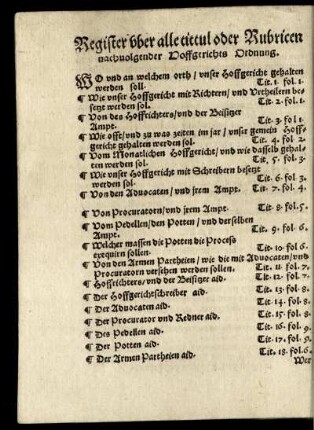 Register vber alle tittul oder Rubricen
nachuolgender Hoffgerichts Ordnung.
WO vnd an welchem orth/ vnser Hoffgericht gehalten
werden soll. Tit. 1. fol. 1.
¶ Wie vnser Hoffgericht mit Richtern/ vnd Vrtheilern be-
setzt werden sol. Tit. 2. fol. 1.
¶ Von des Hoffrichters/ vnd der Beisitzer
Ampt. Tit. 3. fol. 1
¶ Wie offt/ vnd zu was zeiten im jar/ vnser gemein Hoff-
gericht gehalten werden sol. Tit. 4. fol. 2.
¶ Vom Monatlichen Hoffgericht/ vnd wie dasselb gehal-
ten werden sol. Tit. 5. fol. 3.
¶ Wie vnser Hoffgericht mit Schreibern besetzt
werden sol. Tit. 6. fol. 3.
¶ Von den Aduocaten/ vnd jrem Ampt. Tit. 7. fol. 4.
¶ Von Procuratorn/ vnd jrem Ampt. Tit. 8. fol. 5.
¶ Vom Pedellen/ den Potten/ vnd derselben
Ampt. Tit. 9. fol. 6.
¶ Welcher massen die Potten die Proceß
exequirn sollen. Tit. 10. fol. 6.
¶ Von den Armen Partheien/ wie die mit Aduocaten/ vnd
Procuratorn versehen werden sollen. Tit. 11. fol. 7.
¶ Hoffrichters/ vnd der Beisitzer aid. Tit. 12. fol. 7.
¶ Der Hoffgerichtschreiber aid. Tit. 13. fol. 8.
¶ Der Aduocaten aid. Tit. 14. fol. 8.
¶ Der Procurator vnd Redner aid. Tit. 15. fol. 8.
¶ Des Pedellen aid. Tit. 16. fol. 9.
¶ Der Potten aid. Tit. 17. fol. 9.
¶ Der Armen Partheien aid. Tit. 18. fol. 6.
Wer